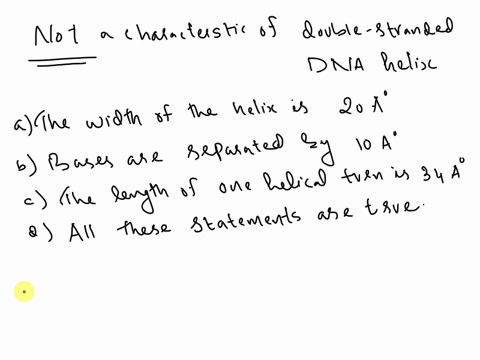 Not a characterstic of double-stranded
DNA helix
a) The width of the helix is 20 A°
b) Bases are separated by 10 A°
c) The length of one helical turn is 34 A°
d) All these statements are true.